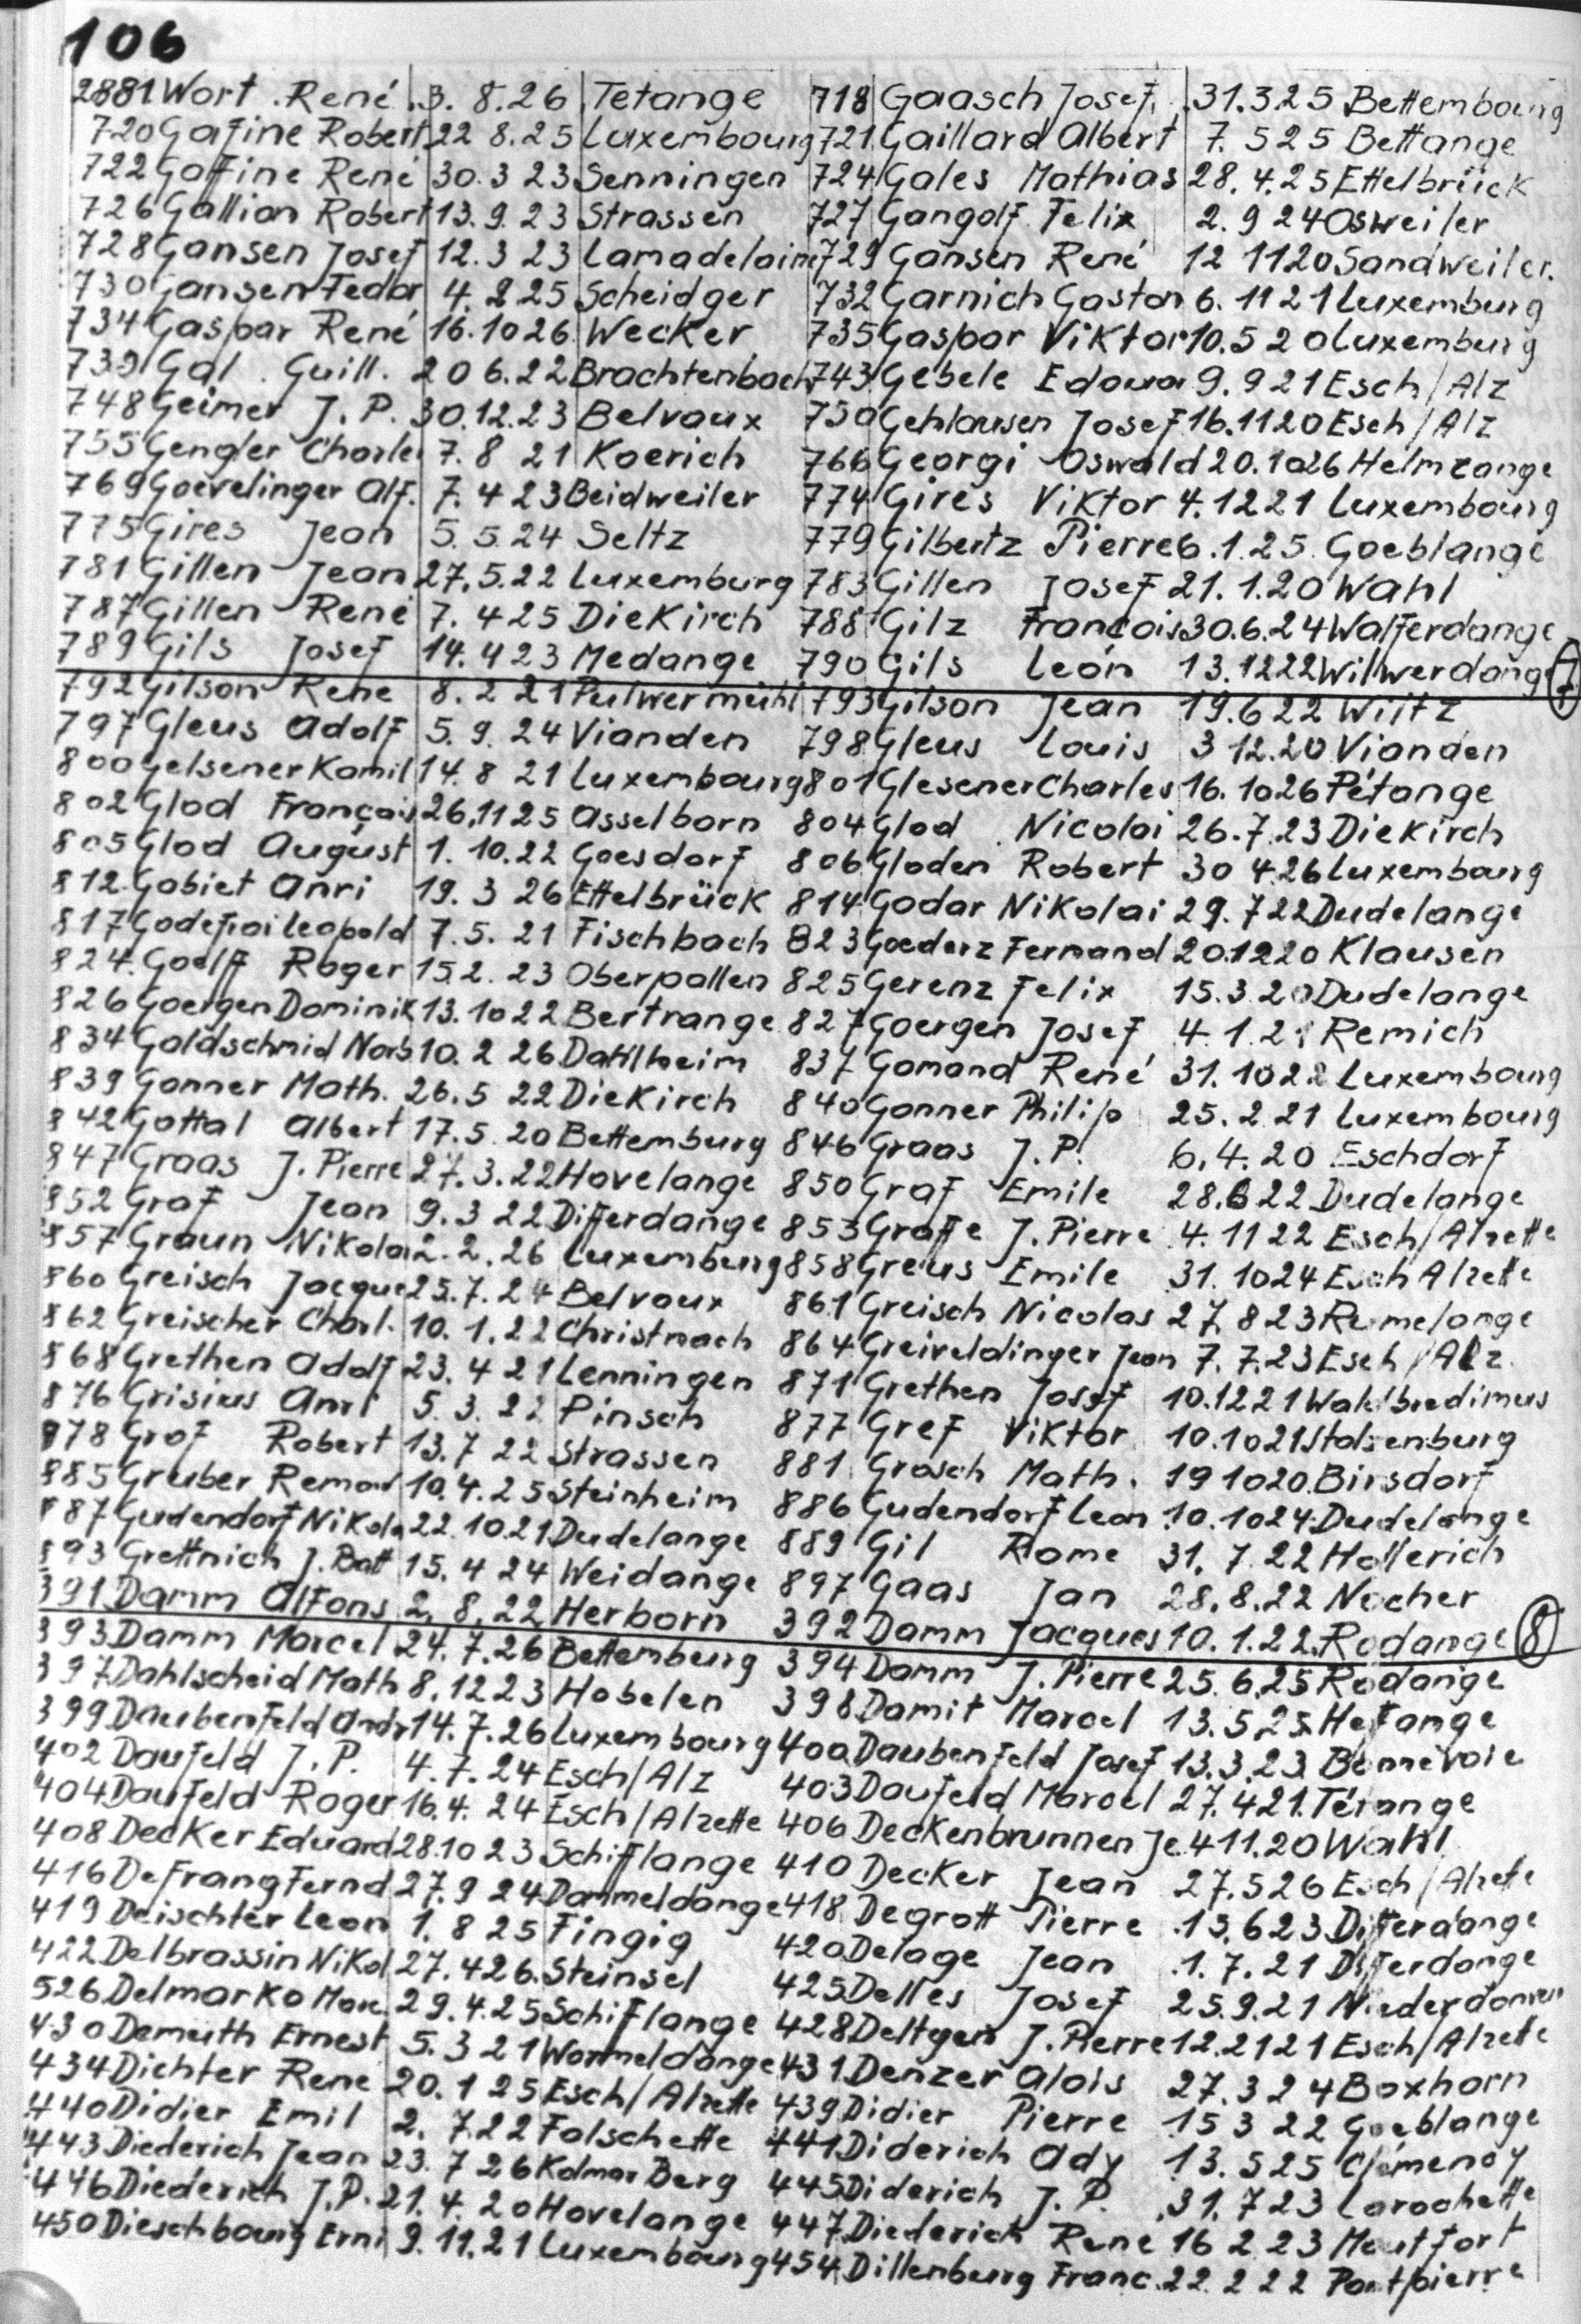 106
2881 Wort René 3. 8.26 Tetange 718 Gaasch Josef 31.3 25 Bettembourg
720 Gafine Robert 22 8.25 Luxembourg 721 Gaillard Albert 7. 5 25 Bettange
722 Gaffine René 30. 3 23 Senningen 724 Gales Mathias 28. 4.25 Ettelbrück
726 Gallion Robert 13. 9. 23 Strassen 727 Gangolf Felix 2. 9 24 Osweiler
728 Gansen Josef 12. 3 23 Lamadelaine 729 Gansen René 12 11 20 Sandweiler.
730 Gansen Fedor 4. 2 25 Scheidger 732 Garnich Gaston 6. 11 21 Luxemburg
734 Gaspar René 16. 10 26 Wecker 735 Gaspar Viktor 10. 5 20 Luxemburg
739 Gal Guill. 20 6.22 Brachtenbach 743 Gebele Edouar 9. 9 21 Esch/Alz
748 Geimer J. P. 30.12.23 Belvaux 750 Gehlausen Josef 16.11 20 Esch/Alz
755 Gengler Charle 7. 8 21 Koerich 766 Georgi Oswald 20.10 26 Helmzange
769 Goevelinger Alf. 7. 4 23 Beidweiler 774 Gires Viktor 4.12 21 Luxembourg
775 Gires Jean 5. 5. 24 Seltz 779 Gilbertz Pierre 6. 1.25. Goeblange
781 Gillen Jean 27. 5.22 Luxemburg 783 Gillen Josef 21. 1.20 Wahl
787 Gillen René 7. 4 25 Diekirch 788 Gilz François 30.6.24 Walferdange
789 Gils Josef 14. 4 23 Medange 790 Gils León 13.12 22 Wilwerdange 7
792 Gilson Rene 8. 2 21 Pulwermühl 793 Gilson Jean 19.6 22 Wiltz
797 Gleus Adolf 5. 9. 24 Vianden 798 Gleus Louis 3 12.20 Vianden
800 Gelsener Kamil 14. 8 21 Luxembourg 801 Glesener Charles 16. 10 26 Pétange
802 Glod François 26.11 25 Asselborn 804 Glod Nicolai 26. 7. 23 Diekirch
805 Glod August 1. 10.22 Goesdorf 806 Gloden Robert 30 4.26 Luxembourg
812 Gobiet Anri 19. 3 26 Ettelbrück 814 Godar Nikolai 29. 7 22 Dudelange
817 Godefroi Leopold 7. 5. 21 Fischbach 823 Goederz Fernand 20.12 20 Klausen
824. Goelff Roger 15 2. 23 Oberpallen 825 Gerenz Felix 15. 3. 20 Dudelange
826 Goergen Dominik 13. 10 22 Bertrange 827 Goergen Josef 4. 1. Remich
834 Goldschmid Norb 10. 2 26 Dahlheim 837 Gomand René 31. 10 22 Luxembourg
839 Gonner Math. 26. 5 22 Diekirch 840 Gonner Philip 25. 2. 21 Luxembourg
842 Gottal Albert 17. 5. 20 Bettemburg 846 Graas J. P. 6. 4. 20 Eschdorf
847 Graas J. Pierre 27. 3. 22 Hovelange 850 Graf Emile 28.6 22 Dudelange
852 Graf Jean 9. 3 22 Differdange 853 Graffe J. Pierre 4. 11 22 Esch/Alzette
857 Graun Nikolai 2. 2. 26 Luxemburg 858 Greus Emile 31. 10 24 Esch Alzette
860 Greisch Jacque 25. 7. 24 Belvaux 861 Greisch Nicolas 27. 8 23 Rumelange
862 Greischer Charl. 10. 1. 22 Christnach 864 Greiveldinger Jean 7. 7. 23 Esch /Alz.
868 Grethen Adolf 23. 4 21 Lenningen 871 Grethen Josef 10.12 21 Waldbredimus
876 Grisius Anri 5. 3. 22 Pinsch 877 Gref Viktor 10. 10 21 Stolzenburg
878 Grof Robert 13. 7 22 Strassen 881 Grosch Math. 19 10 20 Birsdorf
885 Gruber Remon 10. 4. 25 Steinheim 886 Gudendorf Leon 10. 10 24 Dudelange
887 Gudendorf Nikola 22.10.21 Dudelange 889 Gil Rome 31. 7. 22 Hollerich
893 Grettnich J. Batt 15. 4 24 Weidange 897 Gaas Jan 28. 8.22 Nocher
391 Damm Alfons 2. 8. 22 Herborn 392 Damm Jacques 10. 1. 22 Rodange 8
393 Damm Marcel 24. 7. 26 Bettemburg 394 Damm J. Pierre 25. 6.25 Rodange
397 Dahlscheid Math 8. 12 23 Hobelen 398 Damit Marcel 13. 5 25 Heffange
399 Daubenfeld Andr 14. 7. 26 Luxembourg 400 Daubenfeld Josef 13. 3. 23 Bonnevoie
402 Daufeld J. P. 4. 7. 24 Esch/Alz 403 Daufeld Marcel 27. 4 21. Tétange
404 Daufeld Roger 16. 4. 24 Esch/Alzette 406 Deckenbrunnen Je. 4 11. 20 Wahl
408 Decker Eduard 28.10 23 Schifflange 410 Decker Jean 27. 5 26 Esch /Alzette
416 De Frang Fernd 27. 9 24 Dommeldange 418 Degrott Pierre 13. 6 23 Differdange
419 Deischter Leon 1. 8 25 Fingig 420 Delage Jean 1. 7. 21 Differdange
422 Delbrassin Nikol 27. 4 26. Steinsel 425 Delles Josef 25. 9. 21 Niederdonven
526 Delmarko Marc. 29. 4. 25 Schifflange 428 Deltgen J. Pierre 12. 2 1 21 Esch/Alzette
430 Demuth Ernest 5. 3 21 Wormeldange 431 Denzer Alois 27. 3 24 Boxhorn
434 Dichter Rene 20. 1 25 Esch/Alzette 439 Didier Pierre 15 3 22 Goeblange
440 Didier Emil 2. 7 22 Folschette 441 Diderich Ady 13. 5 25 Clémency
443 Diederich Jean 23. 7 26 Kolmar Berg 445 Diderich J. P. 31. 7 23 Larochette
446 Diederich J. P. 21. 4. 20 Hovelange 447 Diederich Rene 16 2 23 Moutfort
450 Dieschbourg Erni 9. 11. 21 Luxembourg 454 Dillenburg Franc. 22. 2 22 Pontpierre